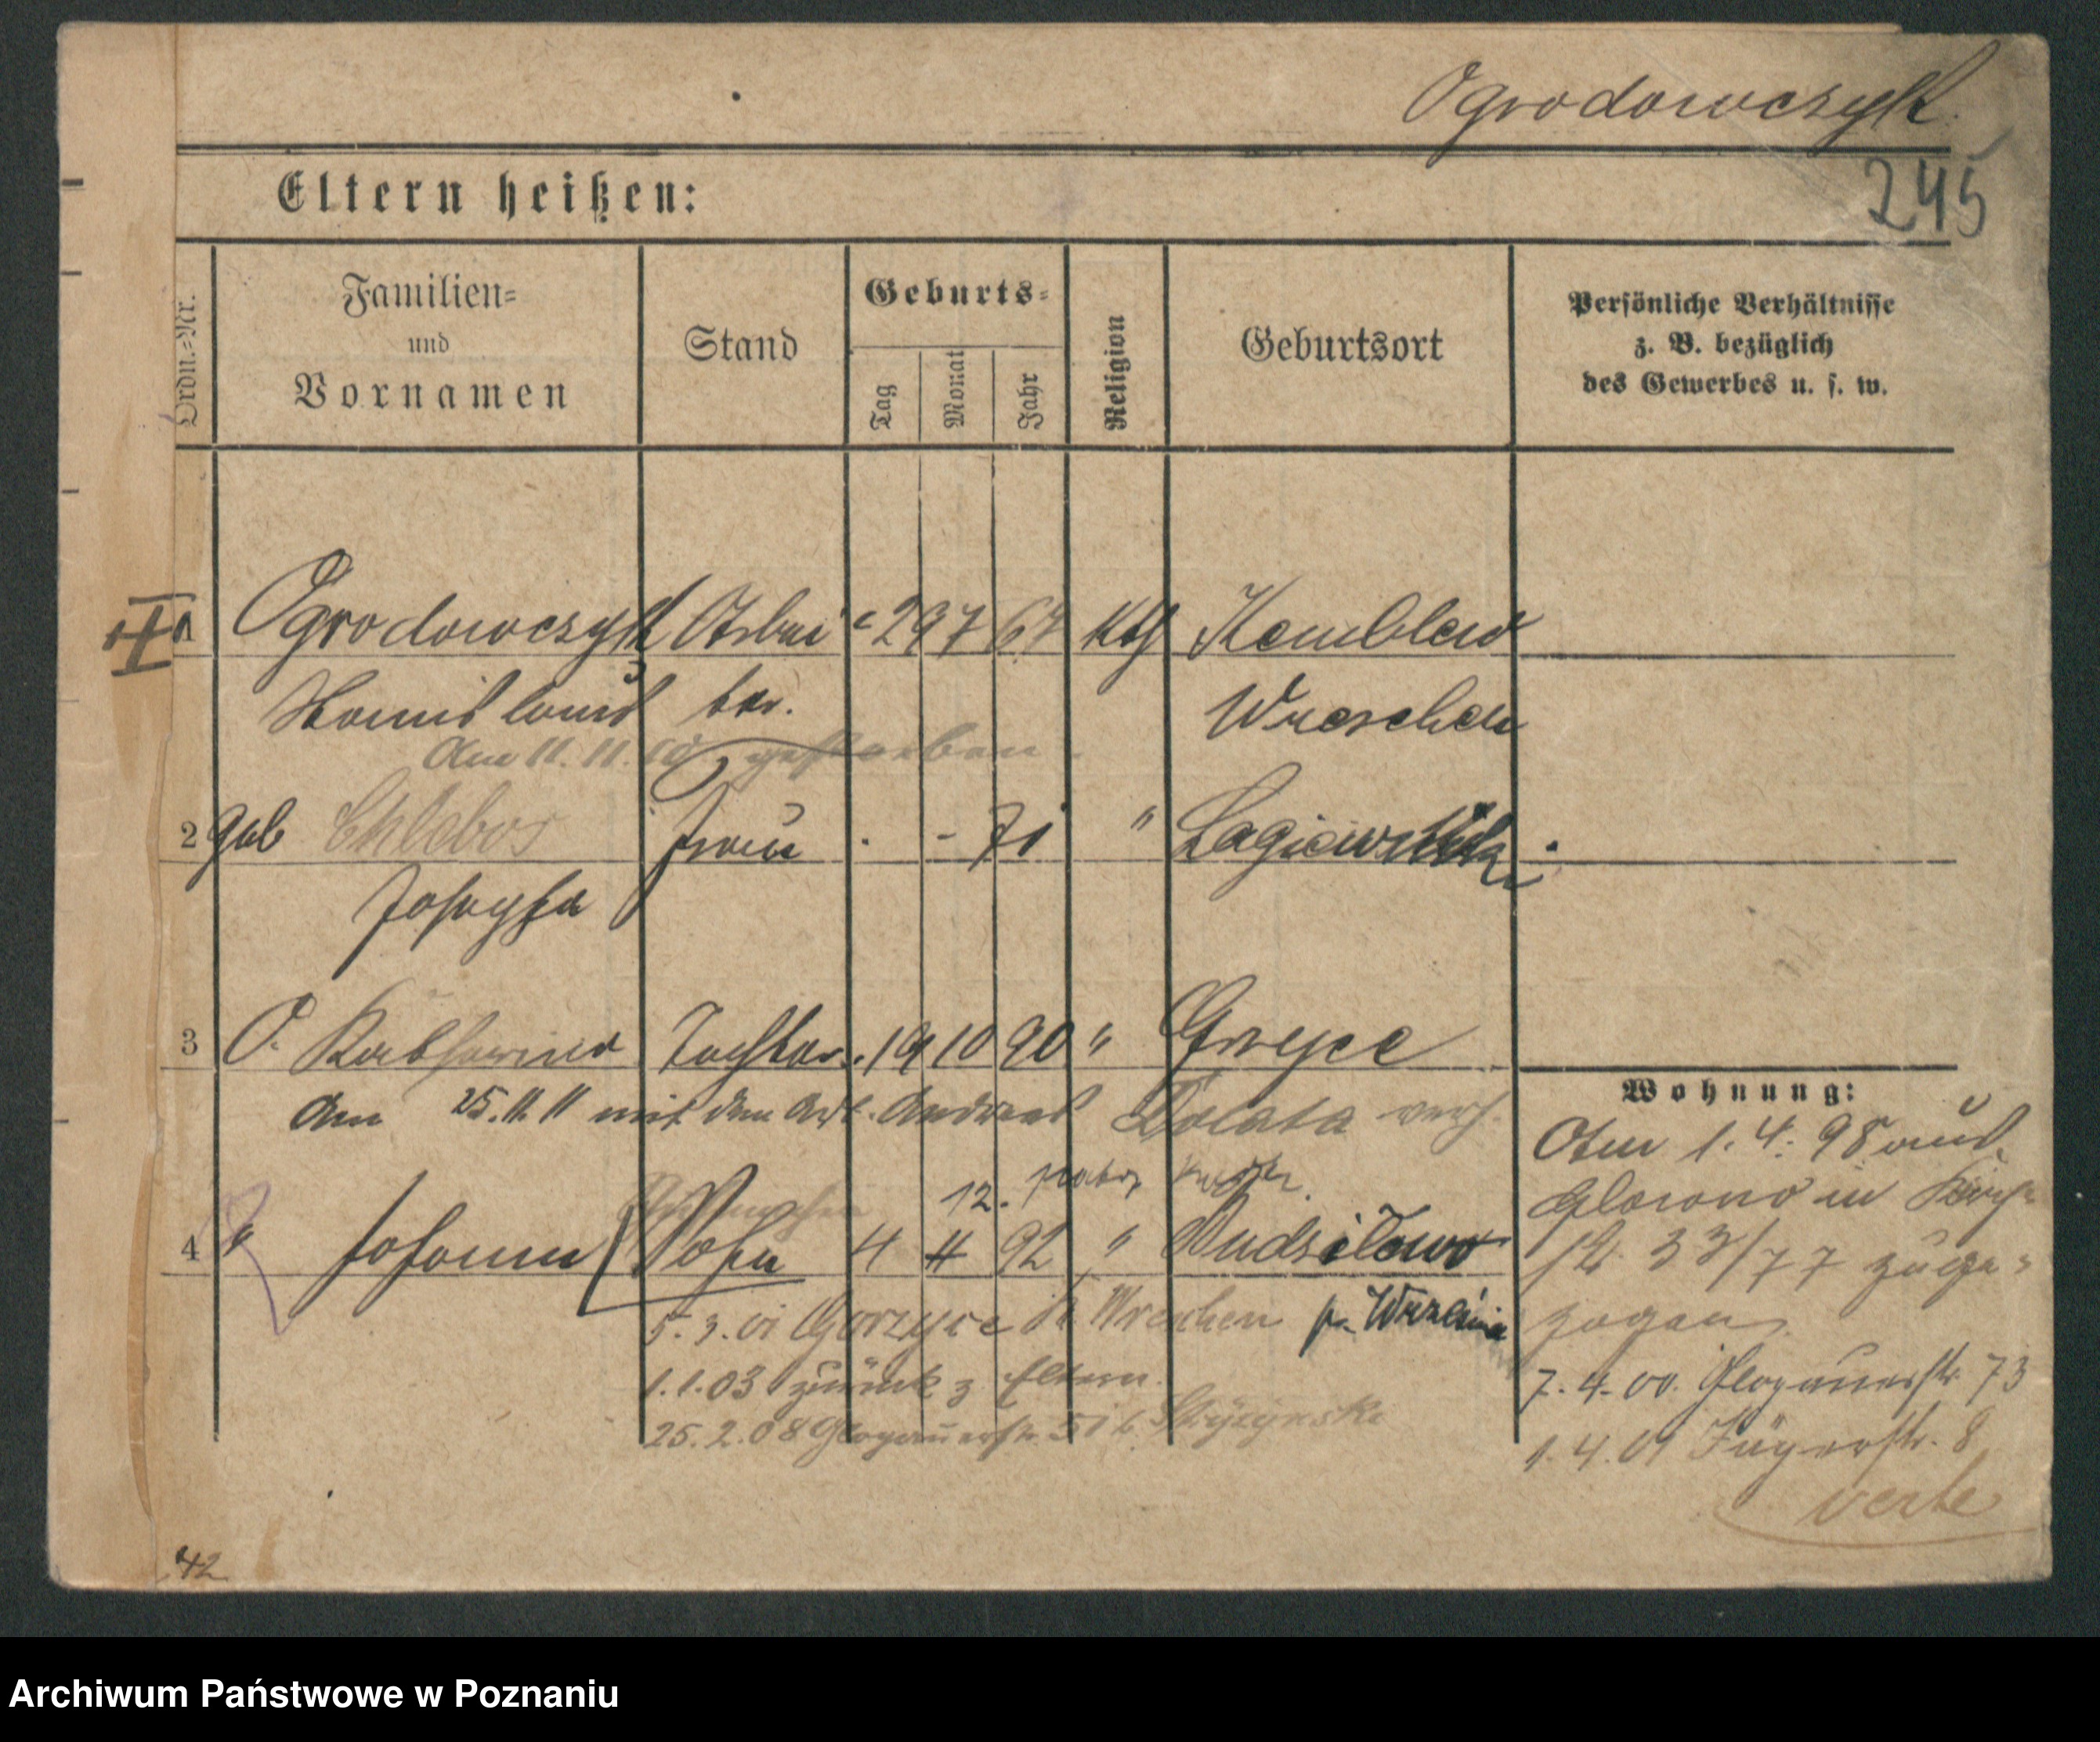 Ogrodowczyk.
245
Eltern heißen:
Ordn.-Nr.
Familien-
und
Vornamen
Stand
Geburts-
Tag
Monat
Jahr
Religion
Geburtsort
Persönliche Verhältnisse
z. B. bezüglich
des Gewerbes u. s. w.
1 Ogrodowczyk Arbei- 29 7 67 kth
Stanislaus ter. Wreschen
Am 11. 11. gestorben
2 geb Chlebos Frau - 71 "
Josepha
3 O. Katharina Tochter 19 10 90 "
Am 25. 11. 11 mit dem Arb. Andreas verh.
12.
4 " Johann Sohn 4 11 92 "
5. 3. 01 Gorzyce Kr. Wreschen p. Września
1. 1. 03 zurück z Eltern.
25. 2. 08 Glogauerstr. 51 b.
Wohnung:
Am 1. 4. 98 aus
Glowno in
str. 33/77 zuge-
zogen.
7. 4. 00. Glogauerstr. 73
1. 4. 01 Jägerstr. 8
verte
42
Archiwum Państwowe w Poznaniu